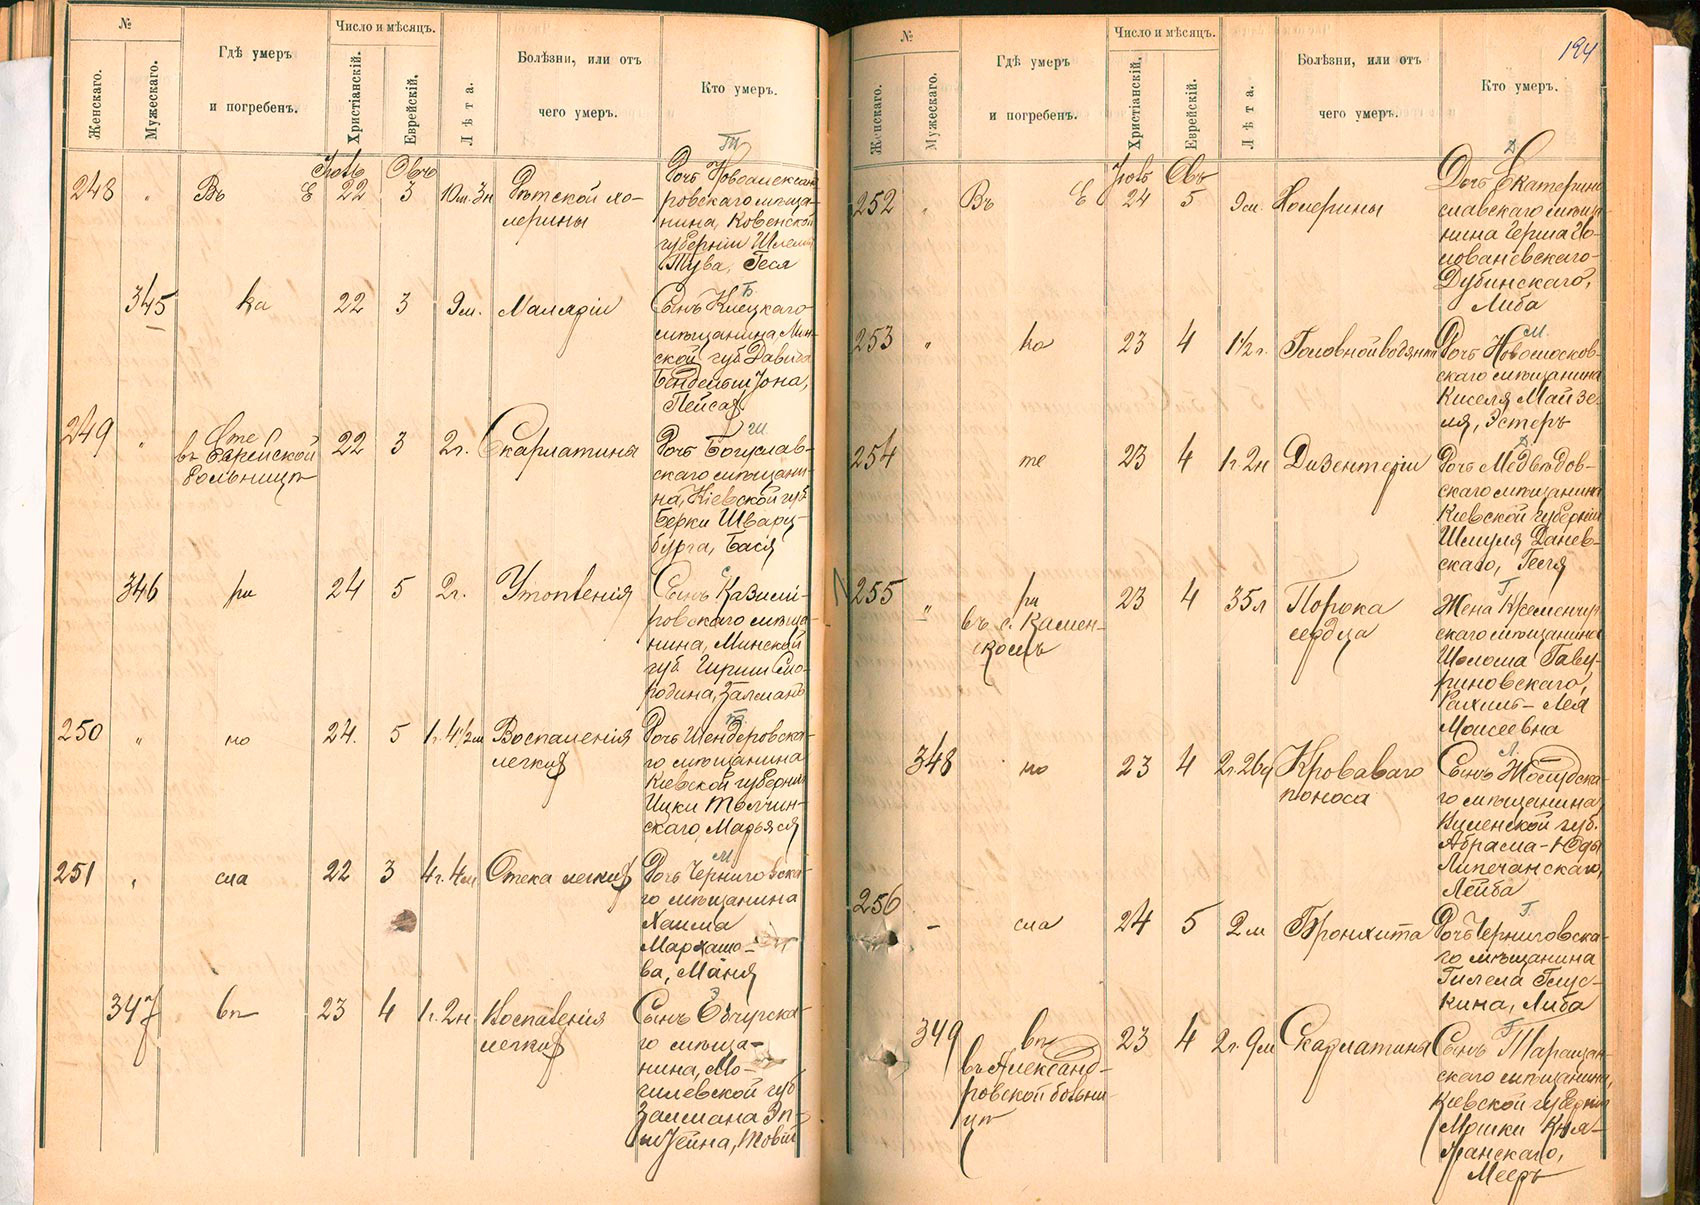 №
Женскаго.
Мужескаго.
Гдѣ умеръ
и погребенъ.
Число и мѣсяцъ.
Христіанскій.
Еврейскій.
Лѣта.
Болѣзни, или отъ
чего умеръ.
Кто умеръ.
248 " Въ Е 22 3 10м. 3н Дѣтской хо-
лерины
Дочь Новоалексан
ровскаго мѣща-
нина, Ковенской
губерніи Шлемы
Тува, Гесл
345 ка 22 3 9м. Маляріи
Сынъ Клецкаго
мѣщанина, Мин-
ской губ. Давида
Бендеты Іона,
Пейсах
249 " въ Еврейской
больницѣ
22 3 2г. Скарлатина
Дочь Богуслав-
скаго мѣщани-
на, Кіевской губ
Берки Шварц-
бурга, Бася
346 ри 24 5 2г. Утопленія
Сынъ Казими-
ровскаго мѣща-
нина, Минской
губ. Гирши Смо-
родина, Залманъ
250 " но 24. 5 1г. 4½м Воспаленія
легких
Дочь Шендеровска-
го мѣщанина
Кіевской губерніи
Ицки Толчин-
скаго, Марьяся
251 " сла 22 3 4г. 4м Отека легких
Дочь Черниговска-
го мѣщанина
Хаима
Мархашо-
ва, Маня
347 вѣ 23 4 1г. 2н Воспаленія
легких
Сынъ
го мѣща-
нина, Мо-
гилевской губ
Залмана Эп-
штейна, Товій
194
№
Женскаго.
Мужескаго.
Гдѣ умеръ
и погребенъ.
Число и мѣсяцъ.
Христіанскій.
Еврейскій.
Лѣта.
Болѣзни, или отъ
чего умеръ.
Кто умеръ.
252 " Въ Е 24 5 9м. Холерины
Дочь Екатерино
славскаго мѣща-
нина Герша Го-
лованевскаго-
Дубинскаго,
Либа
253 " ка 23 4 1½г. Головной водянки
Дочь Новомосков-
скаго мѣщанина
Киселя Майзе-
ля, Эстеръ
254 те 23 4 1г. 2н Дизентеріи
Дочь Медвѣдов-
скаго мѣщанина
Кіевской губерніи
Шмуля Данев-
скаго, Геся
255 " ри
въ с. Камен-
скомъ
23 4 35л Порока
сердца
Жена Кременчуг
скаго мѣщанина
Шолома Гаву-
риновскаго,
Рахиль-Лея
Моисеевна
348 но 23 4 Кроваваго
поноса
Сынъ Жолудска-
го мѣщанина
Виленской губ.
Абрама-Юды
Липечанскаго,
Лейба
256 - сла 24 5 2м Бронхита
Дочь Черниговска-
го мѣщанина
Гилела Глус-
кина, Либа
349 вѣ
въ Александ-
ровской больни-
цѣ
23 4 2г. 9м Скарлатина
Сынъ Таращан-
скаго мѣщанина,
Кіевской губерніи
Мошки Кня-
жанскаго,
Мееръ